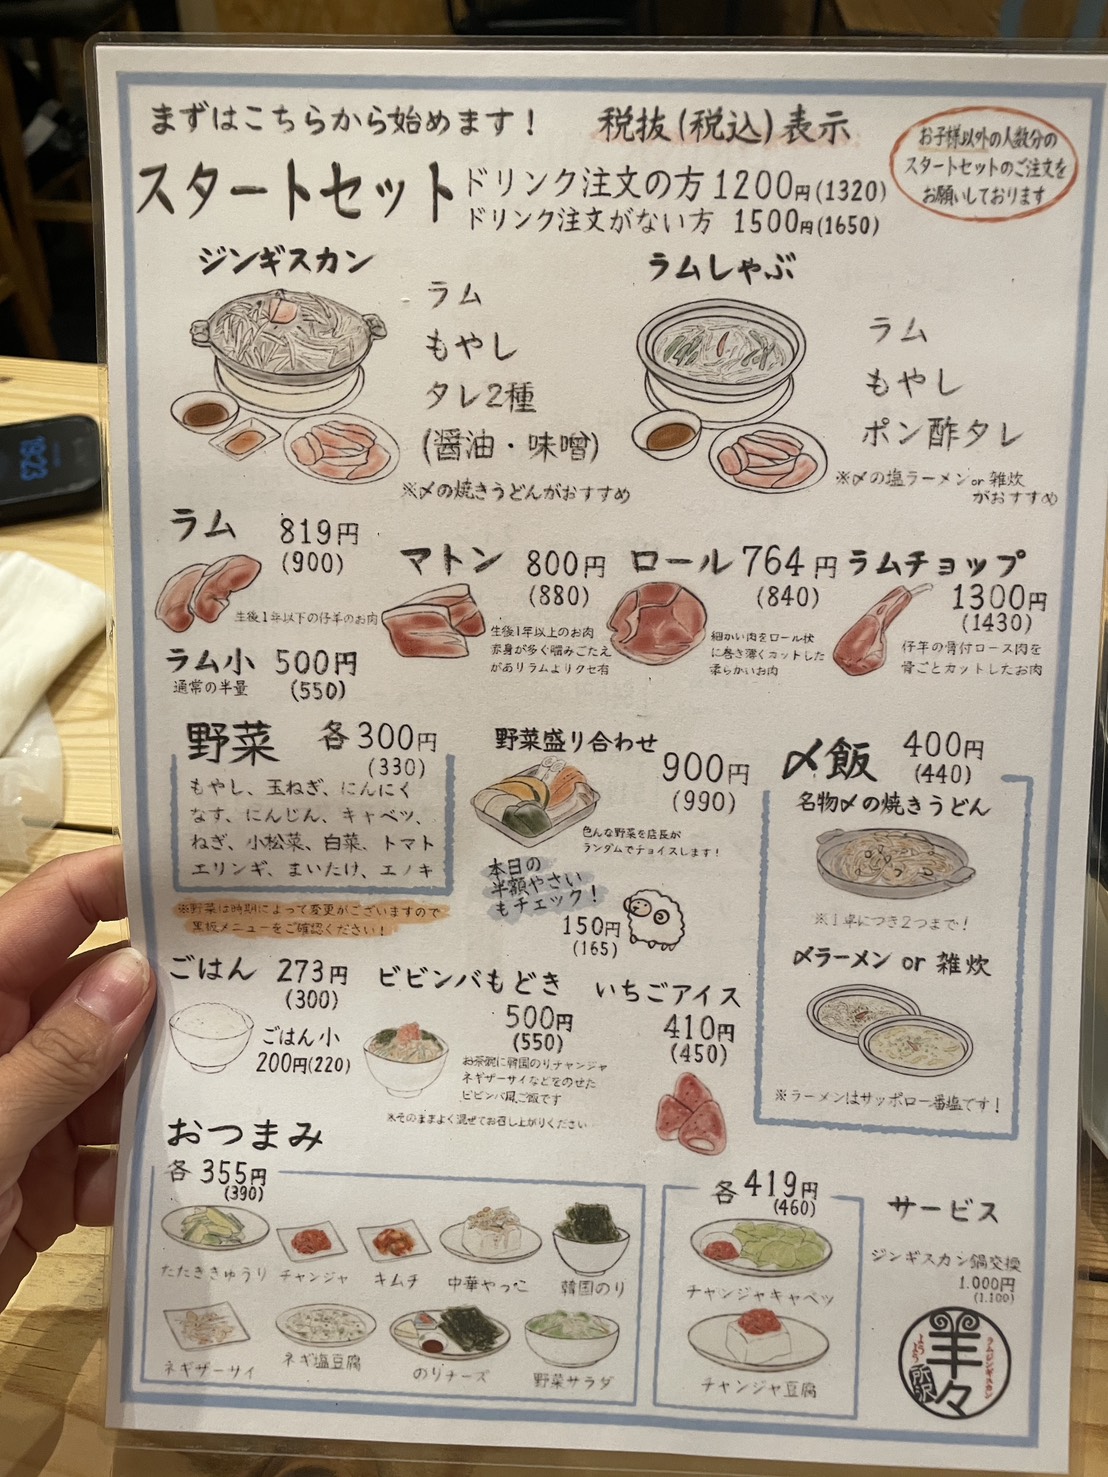 まずはこちらから始めます！
税抜(税込)表示
お子様以外の人数分の
スタートセットのご注文を
お願いしております
スタートセット
ドリンク注文の方 1200円(1320)
ドリンク注文がない方 1500円(1650)
ジンギスカン
ラム
もやし
タレ2種
(醤油・味噌)
※〆の焼きうどんがおすすめ
ラムしゃぶ
ラム
もやし
ポン酢タレ
※〆の塩ラーメンor 雑炊
がおすすめ
ラム 819円
(900)
生後1年以下の仔羊のお肉
ラム小 500円
通常の半量 (550)
マトン 800円
(880)
生後1年以上のお肉
赤身が多く噛みごたえ
がありラムよりクセ有
ロール 764円
(840)
細かい肉をロール状
に巻き薄くカットした
柔らかいお肉
ラムチョップ
1300円
(1430)
仔羊の骨付ロース肉を
骨ごとカットしたお肉
野菜 各300円
(330)
もやし、玉ねぎ、にんにく
なす、にんじん、キャベツ、
ねぎ、小松菜、白菜、トマト
エリンギ、まいたけ、エノキ
※野菜は時期によって変更がございますので
黒板メニューをご確認ください！
野菜盛り合わせ
900円
(990)
色んな野菜を店長が
ランダムでチョイスします！
本日の
半額やさい
もチェック！
150円
(165)
〆飯 400円
(440)
名物〆の焼きうどん
※1卓につき2つまで！
〆ラーメン or 雑炊
※ラーメンはサッポロ一番塩です！
ごはん 273円
(300)
ごはん小
200円(220)
ビビンバもどき
500円
(550)
お茶碗に韓国のりチャンジャ
ネギザーサイなどをのせた
ビビンバ風ご飯です
※そのままよく混ぜてお召し上がりください
いちごアイス
410円
(450)
おつまみ
各355円
(390)
たたききゅうり
チャンジャ
キムチ
中華やっこ
韓国のり
ネギザーサイ
ネギ塩豆腐
のりチーズ
野菜サラダ
各419円
(460)
チャンジャキャベツ
チャンジャ豆腐
サービス
ジンギスカン鍋交換
1.000円
(1.100)
ラムジンギスカン
羊々
ようよう
所沢
1923